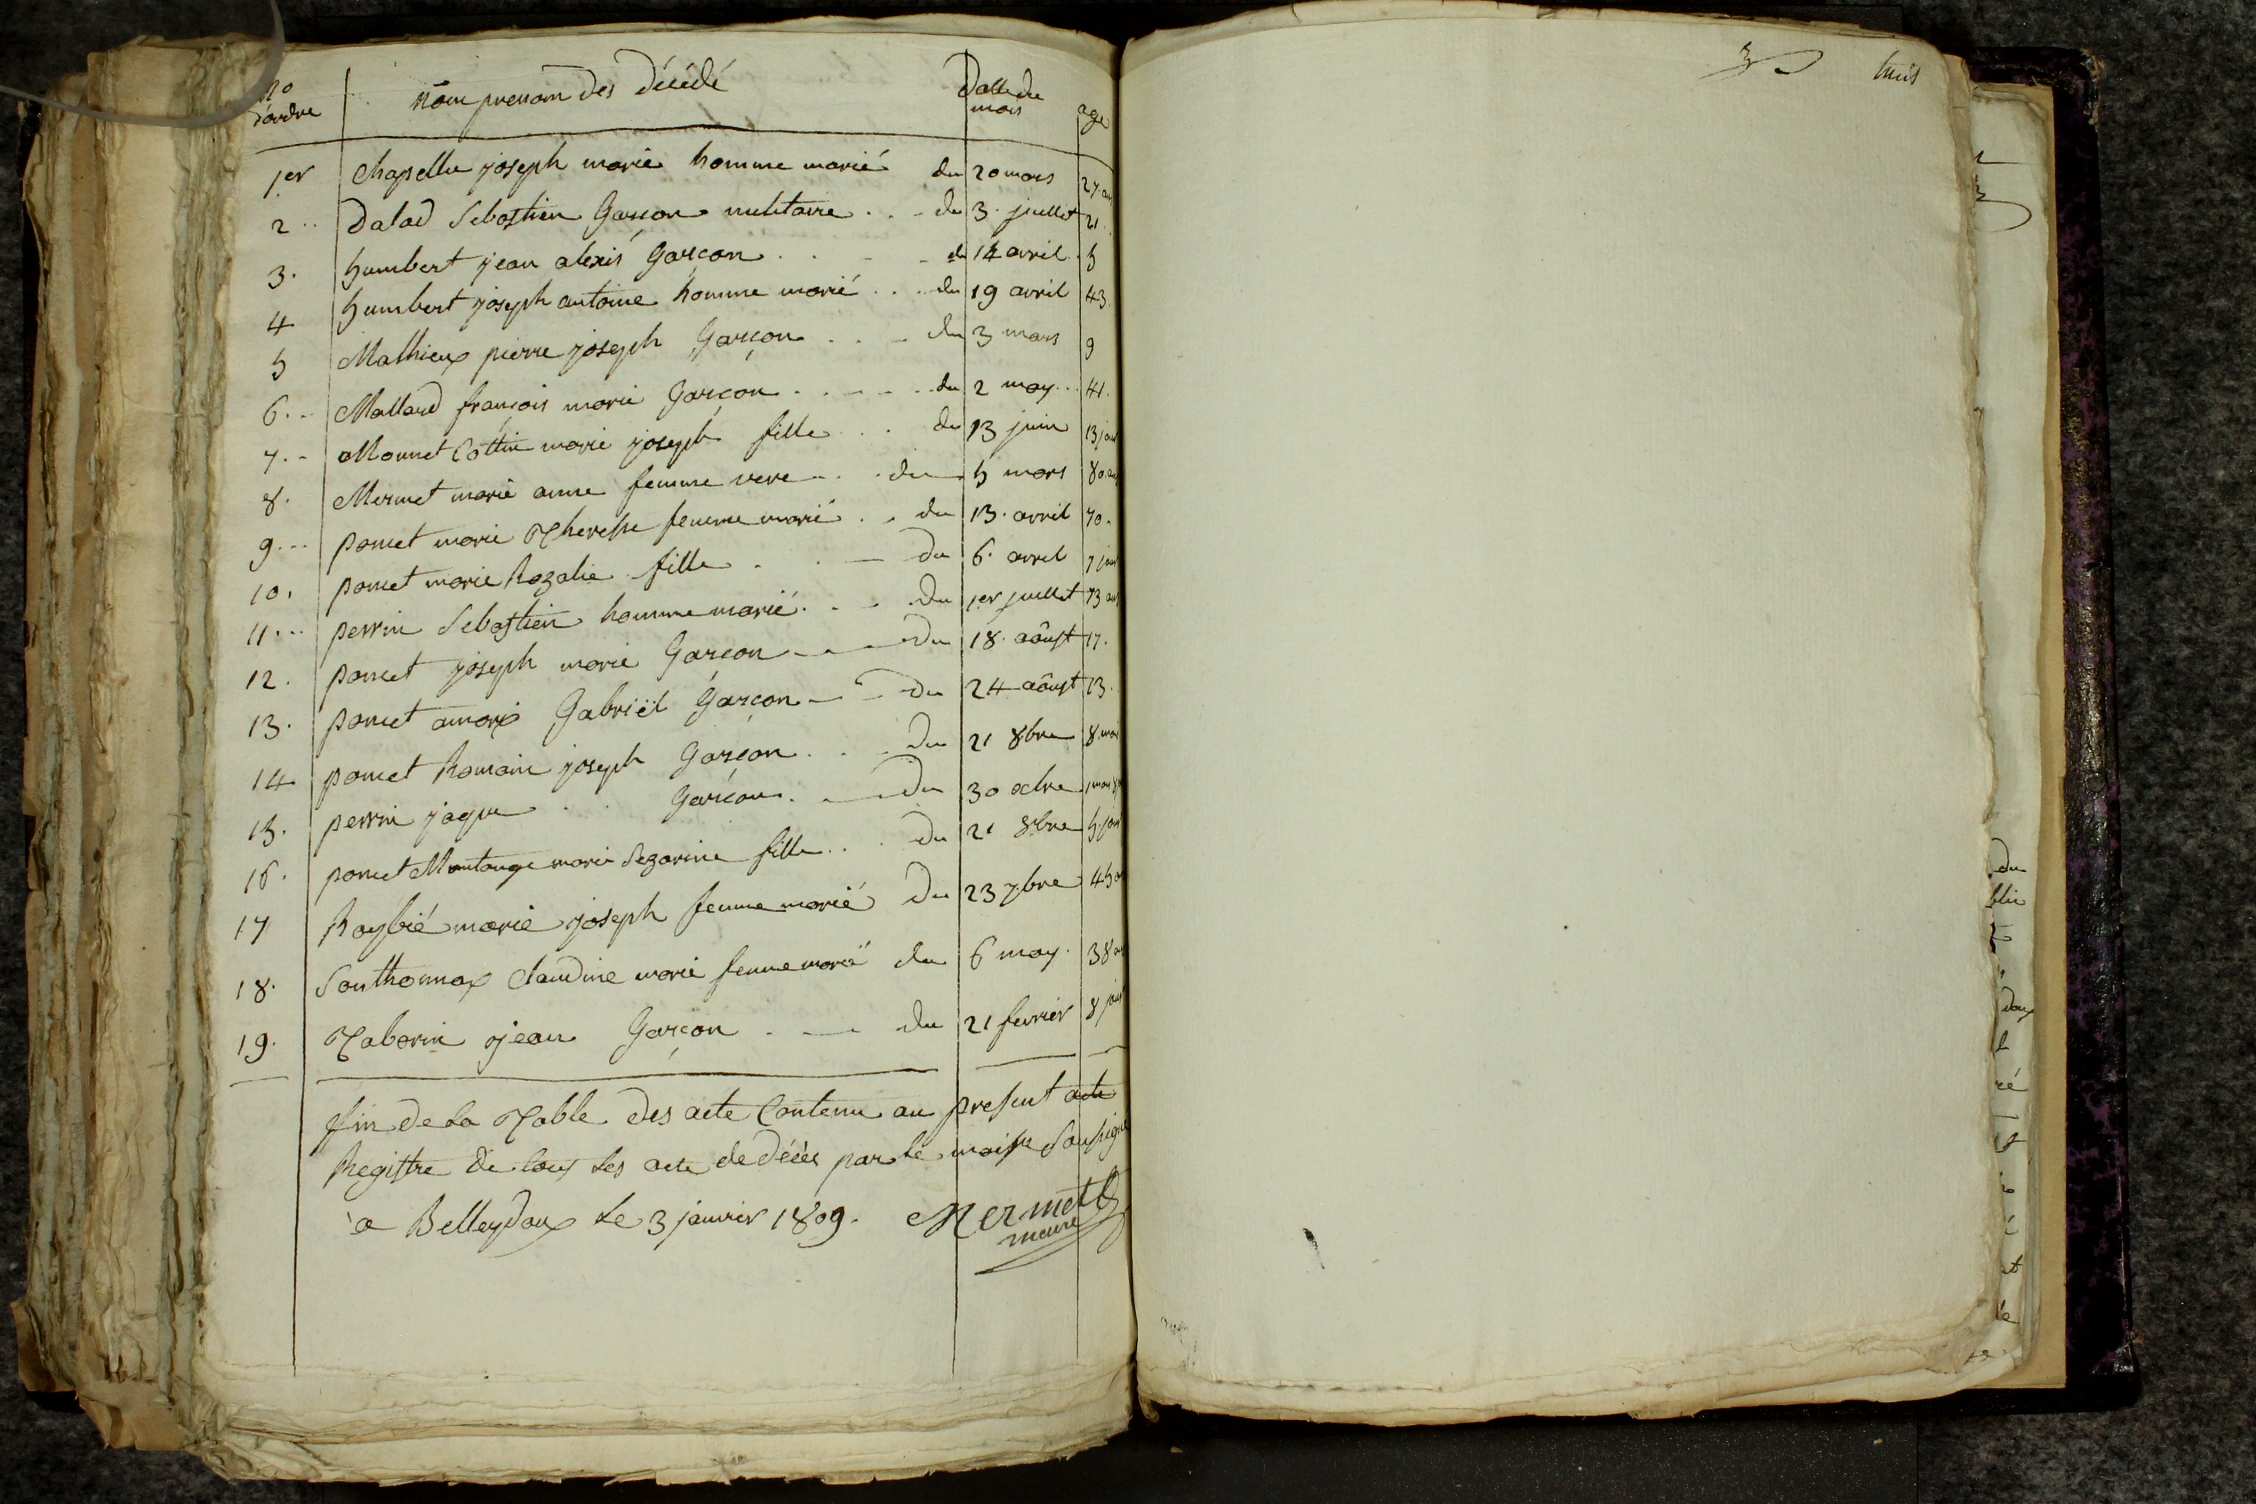 No d'ordre nom prenom des décédé Datte du mois age
1er Chapellu joseph marie homme marié du 20 mars 27 ans
2 Dalad Sebastien Garcon militaire du 3 juillet 21
3. humbert jean alexis Garçon du 14 avril 5
4 humbert joseph antoine homme marié du 19 avril 43
5 Mathieux pierre joseph Garçon du 3 mars 9
6 Mallard françois marie Garçon du 2 may 41.
7 Monnet Cottin marie joseph fille du 13 juin 13 jour
8. Mermet marie anne femme veve du 5 mars 80 ans
9 poncet marie Therese femme marié du 13. avril 70.
10. poncet marie Rozalie fille du 6. avril 7 jour
11 perrin Sebastien homme marié du 1er juillet 73 ans
12. poncet joseph marie Garçon du 18. aôust 17.
13. poncet amorix Gabriël Garçon du 24 aôust 13.
14 poncet Romain joseph Garçon du 21 8bre 8 moi
15. perrin jaque Garçon du 30 octre 1 moi
16. poncet Montange marie Sezarine fille du 21 8bre 5 jour
17 Roybié marie joseph femme marié du 23 7bre 45 an
18. Southonnax Claudine marie femme marié du 6 may. 38 an
19. Taborin jean Garçon du 21 fevrier 8 jour
fin de la Table des acte Contenu au present acte
Registre de tous les acte de décès par le maire Sousigné
a Belleydoux le 3 janvier 1809. Mermet
maire
3 trois